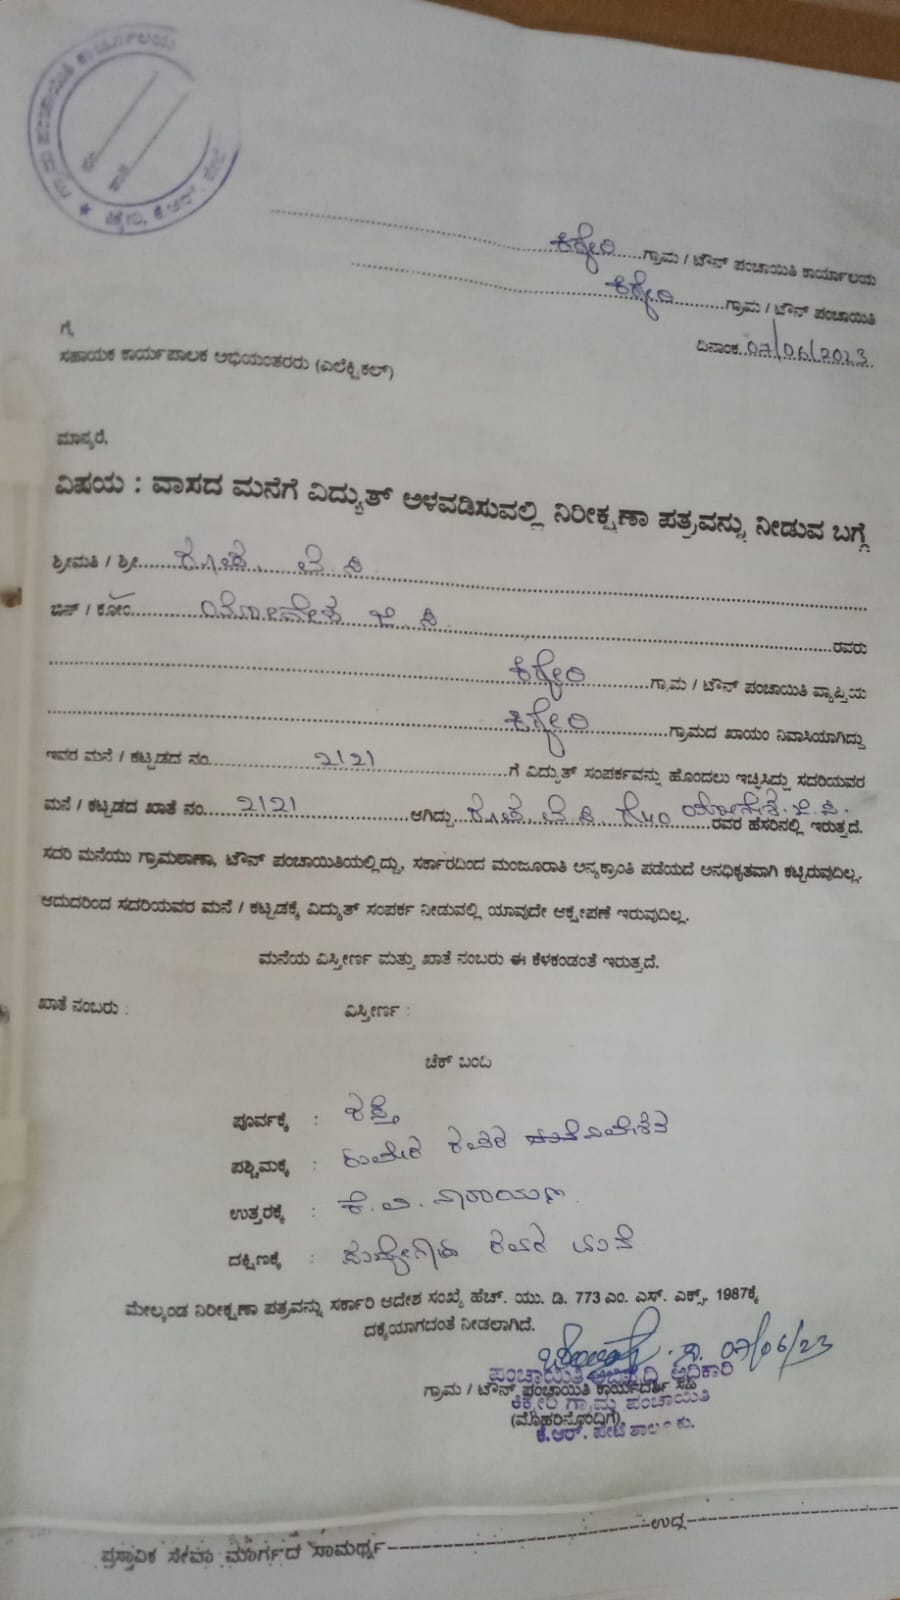 ಗ್ರಾಮ ಪಂಚಾಯಿತಿ ಕಾರ್ಯಾಲಯ
ನಂ
ತಾರೀ
★ ಕಿಕ್ಕೇರಿ, ಕೆ.ಆರ್. ಪೇಟೆ
ಕಿಕ್ಕೇರಿ ಗ್ರಾಮ / ಟೌನ್ ಪಂಚಾಯಿತಿ ಕಾರ್ಯಾಲಯ
ಕಿಕ್ಕೇರಿ ಗ್ರಾಮ / ಟೌನ್ ಪಂಚಾಯಿತಿ
ದಿನಾಂಕ 07/06/2023
ಗೆ,
ಸಹಾಯಕ ಕಾರ್ಯಪಾಲಕ ಅಭಿಯಂತರರು (ಎಲೆಕ್ಟ್ರಿಕಲ್)
ಮಾನ್ಯರೆ,
ವಿಷಯ : ವಾಸದ ಮನೆಗೆ ವಿದ್ಯುತ್ ಅಳವಡಿಸುವಲ್ಲಿ ನಿರೀಕ್ಷಣಾ ಪತ್ರವನ್ನು ನೀಡುವ ಬಗ್ಗೆ
ಶ್ರೀಮತಿ / ಶ್ರೀ
ಬಿನ್ / ಕೋಂ ಯೋಗೇಶ ಜೆ ಪಿ ರವರು
ಕಿಕ್ಕೇರಿ ಗ್ರಾಮ / ಟೌನ್ ಪಂಚಾಯಿತಿ ವ್ಯಾಪ್ತಿಯ
ಕಿಕ್ಕೇರಿ ಗ್ರಾಮದ ಖಾಯಂ ನಿವಾಸಿಯಾಗಿದ್ದು
ಇವರ ಮನೆ / ಕಟ್ಟಡದ ನಂ. 2121 ಗೆ ವಿದ್ಯುತ್ ಸಂಪರ್ಕವನ್ನು ಹೊಂದಲು ಇಚ್ಛಿಸಿದ್ದು ಸದರಿಯವರ
ಮನೆ / ಕಟ್ಟಡದ ಖಾತೆ ನಂ. 2121 ಆಗಿದ್ದು ಕೋಂ ಯೋಗೇಶ. ಜೆ. ಪಿ. ರವರ ಹೆಸರಿನಲ್ಲಿ ಇರುತ್ತದೆ.
ಸದರಿ ಮನೆಯು ಗ್ರಾಮಠಾಣಾ, ಟೌನ್ ಪಂಚಾಯಿತಿಯಲ್ಲಿದ್ದು, ಸರ್ಕಾರದಿಂದ ಮಂಜೂರಾತಿ ಅನ್ಯಕ್ರಾಂತಿ ಪಡೆಯದೆ ಅನಧಿಕೃತವಾಗಿ ಕಟ್ಟಿರುವುದಿಲ್ಲ.
ಆದುದರಿಂದ ಸದರಿಯವರ ಮನೆ / ಕಟ್ಟಡಕ್ಕೆ ವಿದ್ಯುತ್ ಸಂಪರ್ಕ ನೀಡುವಲ್ಲಿ ಯಾವುದೇ ಆಕ್ಷೇಪಣೆ ಇರುವುದಿಲ್ಲ.
ಮನೆಯ ವಿಸ್ತೀರ್ಣ ಮತ್ತು ಖಾತೆ ನಂಬರು ಈ ಕೆಳಕಂಡಂತೆ ಇರುತ್ತದೆ.
ಖಾತೆ ನಂಬರು : ವಿಸ್ತೀರ್ಣ :
ಚೆಕ್ ಬಂದಿ
ಪೂರ್ವಕ್ಕೆ : ರಸ್ತೆ
ಪಶ್ಚಿಮಕ್ಕೆ : ರವರ ನಿವೇಶನ
ಉತ್ತರಕ್ಕೆ : ಕೆ. ವಿ. ನಾರಾಯಣ
ದಕ್ಷಿಣಕ್ಕೆ : ರವರ ಮನೆ
ಮೇಲ್ಕಂಡ ನಿರೀಕ್ಷಣಾ ಪತ್ರವನ್ನು ಸರ್ಕಾರಿ ಆದೇಶ ಸಂಖ್ಯೆ ಹೆಚ್. ಯು. ಡಿ. 773 ಎಂ. ಎಸ್. ಎಕ್ಸ್. 1987ಕ್ಕೆ
ದಕ್ಕೆಯಾಗದಂತೆ ನೀಡಲಾಗಿದೆ.
07/06/23
ಪಂಚಾಯಿತಿ ಅಭಿವೃದ್ಧಿ ಅಧಿಕಾರಿ
ಗ್ರಾಮ / ಟೌನ್ ಪಂಚಾಯಿತಿ ಕಾರ್ಯದರ್ಶಿ ಸಹಿ
ಕಿಕ್ಕೇರಿ ಗ್ರಾಮ ಪಂಚಾಯಿತಿ
(ಮೊಹರಿನೊಂದಿಗೆ)
ಕೆ.ಆರ್. ಪೇಟೆ ತಾಲ್ಲೂಕು.
ಪ್ರಸ್ತಾವಿಕ ಸೇವಾ ಮಾರ್ಗದ ಸಾಮರ್ಥ್ಯ ಉದ್ದ